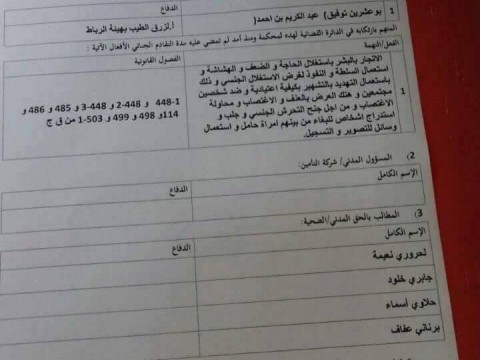 الدفاع
1 بوعشرين توفيق( عبد الكريم بن احمد(
أ.لزرق الطيب بهيئة الرباط
المتهم بارتكابه في الدائرة القضائية لهذه لمحكمة ومنذ أمد لم تمضي عليه مدة التقادم الجنائي الأفعال الآتية :
الفعل/التهمة
الفصول القانونية
1
الاتجار بالبشر باستغلال الحاجة و الضعف و الهشاشة و
استعمال السلطة و النفوذ لغرض الاستغلال الجنسي و ذلك
باستعمال التهديد بالتشهير بكيفية اعتيادية و ضد شخصين
مجتمعين و هتك العرض بالعنف و الاغتصاب و محاولة
الاغتصاب و من اجل جنح التحرش الجنسي و جلب و
استدراج اشخاص للبغاء من بينهم امراة حامل و استعمال
وسائل للتصوير و التسجيل.
448-1 و 448-2 و 448-3 و 485 و 486 و
114و 498 و 499 و 503-1 من ق ج
2) المسؤول المدني/ شركة التأمين:
الإسم الكامل
الدفاع
3) المطالب بالحق المدني/الضحية:
الإسم الكامل
الدفاع
لحروري نعيمة
جابري خلود
حلاوي أسماء
برناني عفاف